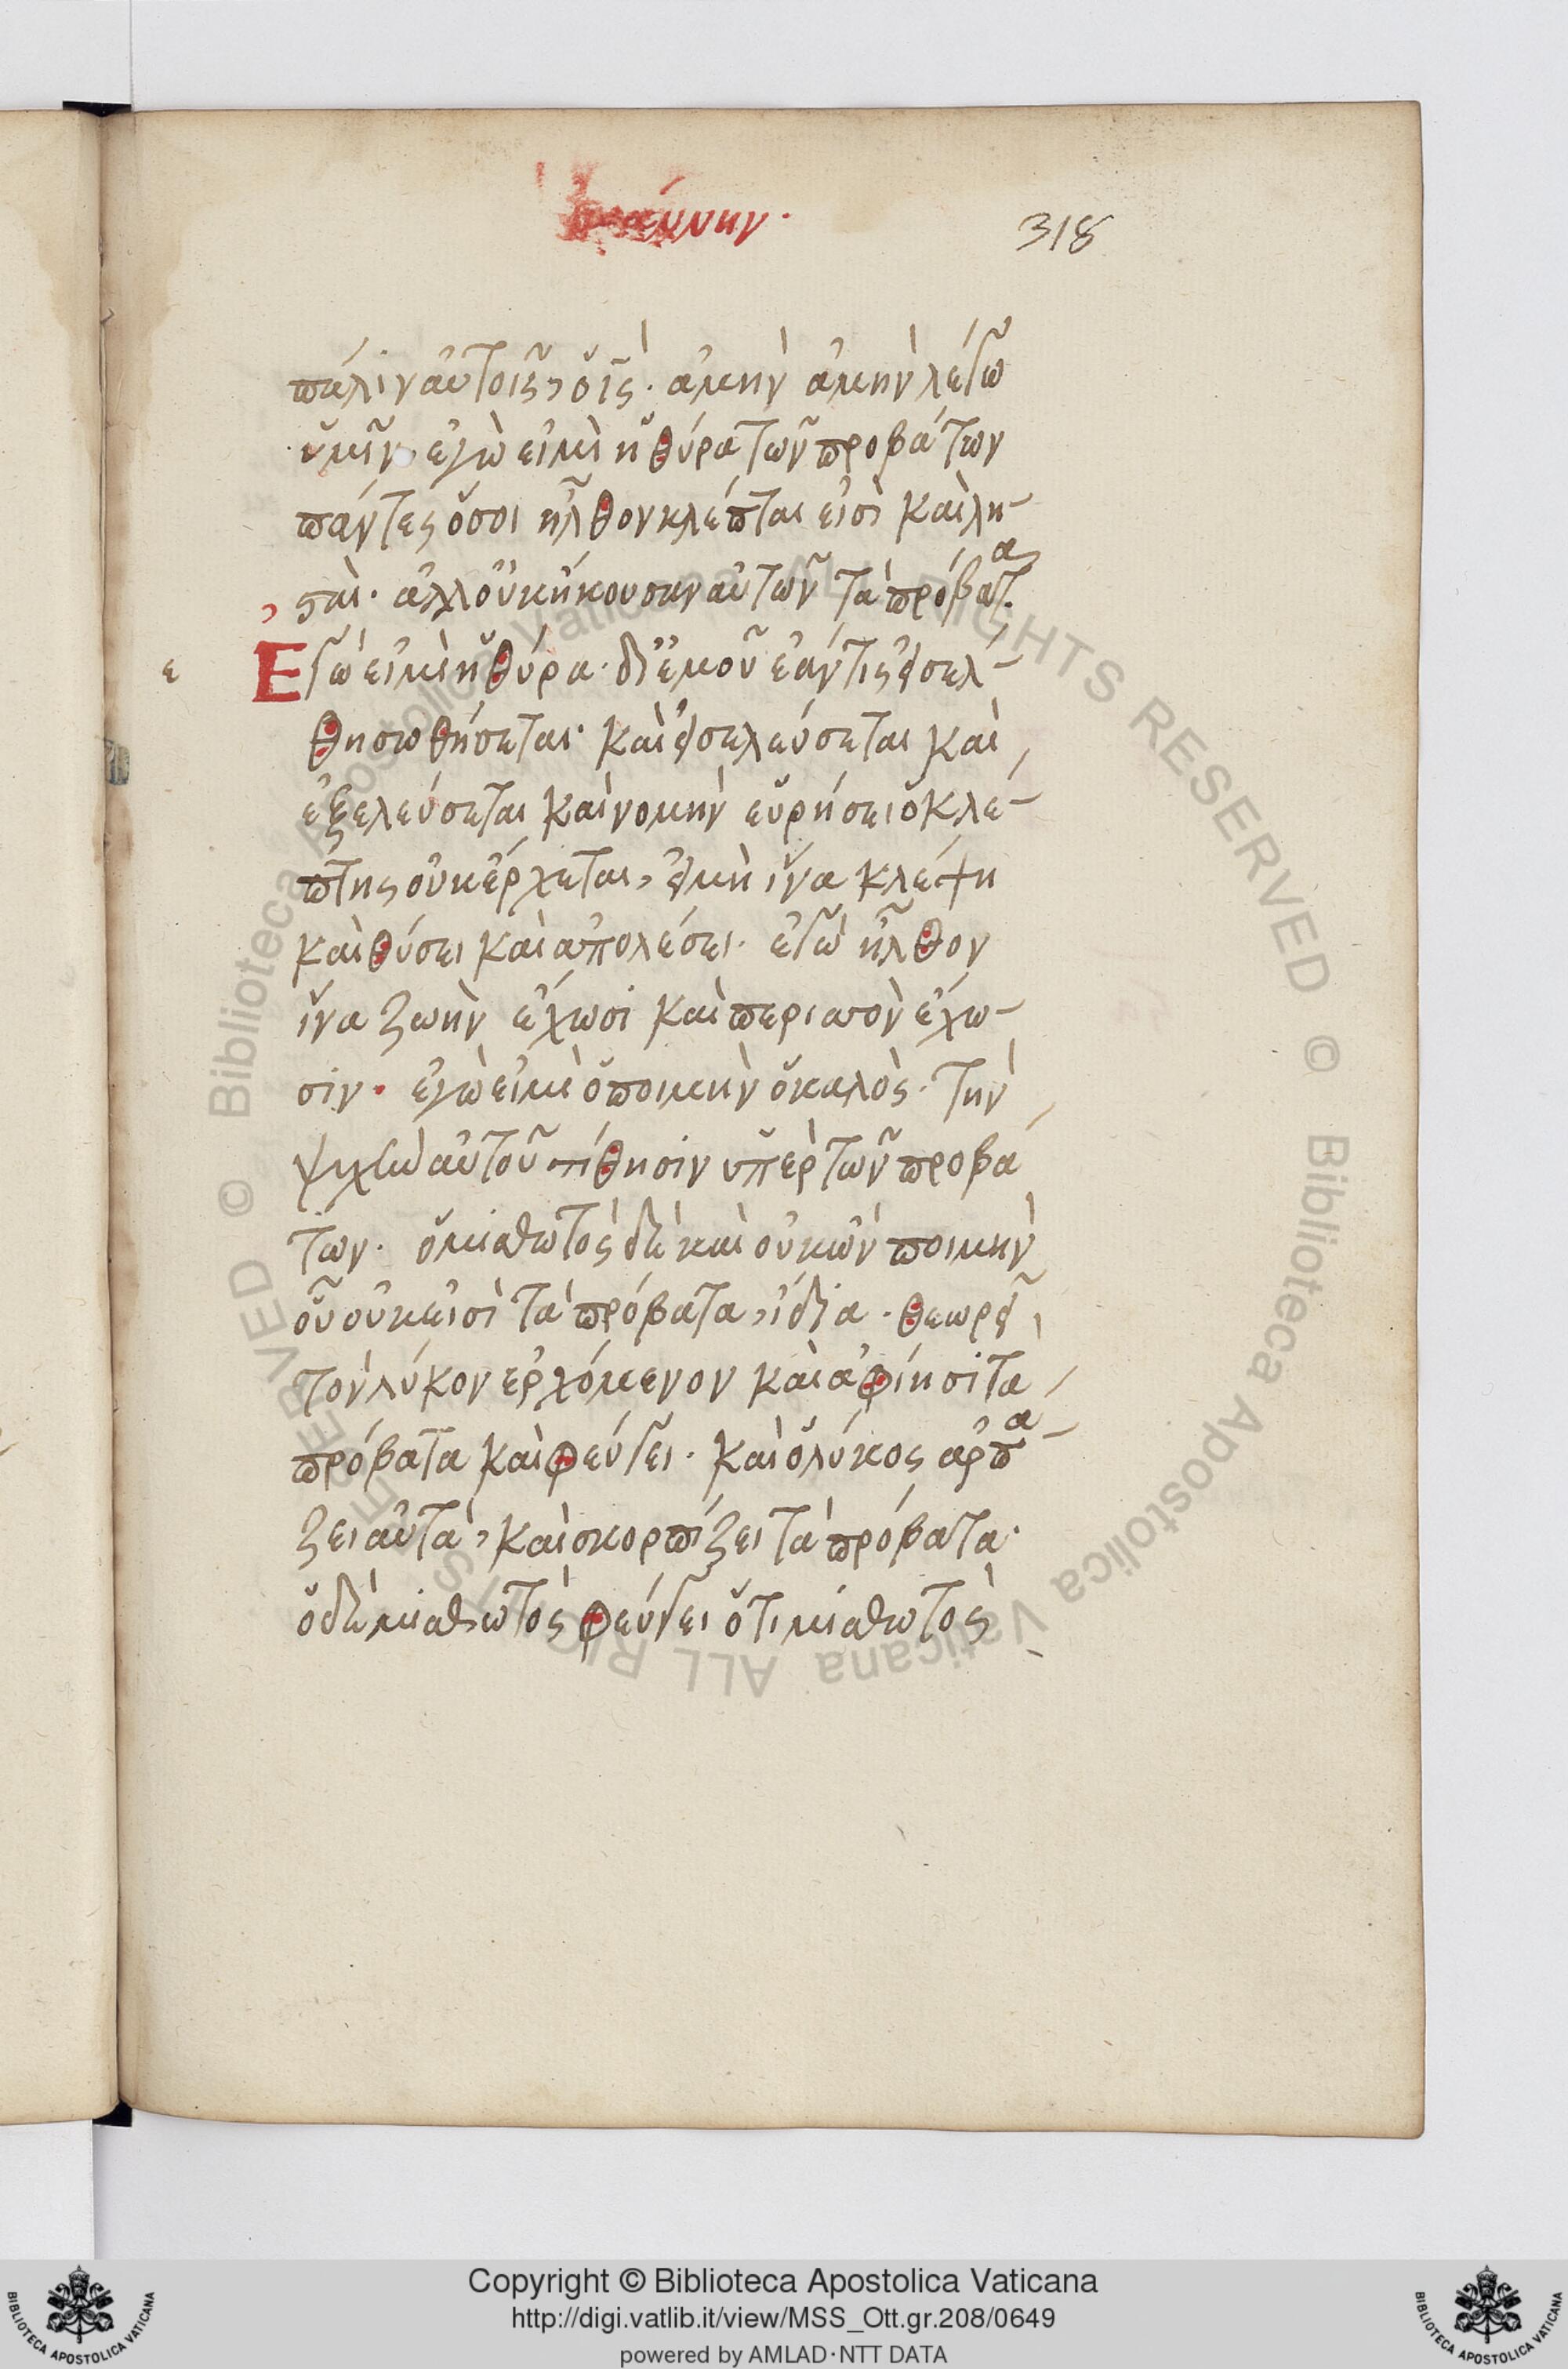 Ἰωάννην.
318
πάλιν αὐτοῖς, ὁ ἰς̄. ἀμὴν ἀμὴν λέγω
ὑμῖν. ἐγὼ εἰμὶ ἡ θύρα τῶν προβάτων
πάντες ὅσοι ἦλθον κλέπται εἰσὶ καὶ λη-
σταὶ. ἀλλ οὐκ ἤκουσαν αὐτῶν τὰ πρόβατα
ε
Ἐγὼ εἰμὶ ἡ θύρα. δι ἐμοῦ ἐάν τις εἰσελ-
θη σωθήσεται. καὶ εἰσελεύσεται καὶ
ἐξελεύσεται καὶ νομὴν εὑρήσει ὁ κλέ-
πτης οὐκ ἔρχεται, εἰ μὴ ἵνα κλέψη
καὶ θύσει καὶ ἀπολέσει. ἐγὼ ἦλθον
ἵνα ζωὴν ἔχωσι καὶ περισσὸν ἔχω-
σιν. ἐγὼ εἰμὶ ὁ ποιμὴν ὁ καλὸς. τὴν
ψυχὴν αὐτοῦ τίθησιν ὑπὲρ τῶν προβά
των. ὁ μισθωτὸς δὲ καὶ οὐκ ὢν ποιμὴν
οὗ οὐκ εἰσὶ τὰ πρόβατα, ἴδια. θεωρεῖ
τὸν λύκον ἐρχόμενον καὶ ἀφίησι τὰ
πρόβατα καὶ φεύγει. καὶ ὁ λύκος ἁρπά
ζει αὐτὰ, καὶ σκορπίζει τὰ πρόβατα.
ὁ δὲ μισθωτὸς φεύγει ὅτι μισθωτὸς
Copyright © Biblioteca Apostolica Vaticana
http://digi.vatlib.it/view/MSS_Ott.gr.208/0649
powered by AMLAD·NTT DATA
© Biblioteca Apostolica Vaticana ALL RIGHTS RESERVED
© Biblioteca Apostolica Vaticana ALL RIGHTS RESERVED
BIBLIOTECA APOSTOLICA VATICANA
BIBLIOTECA APOSTOLICA VATICANA